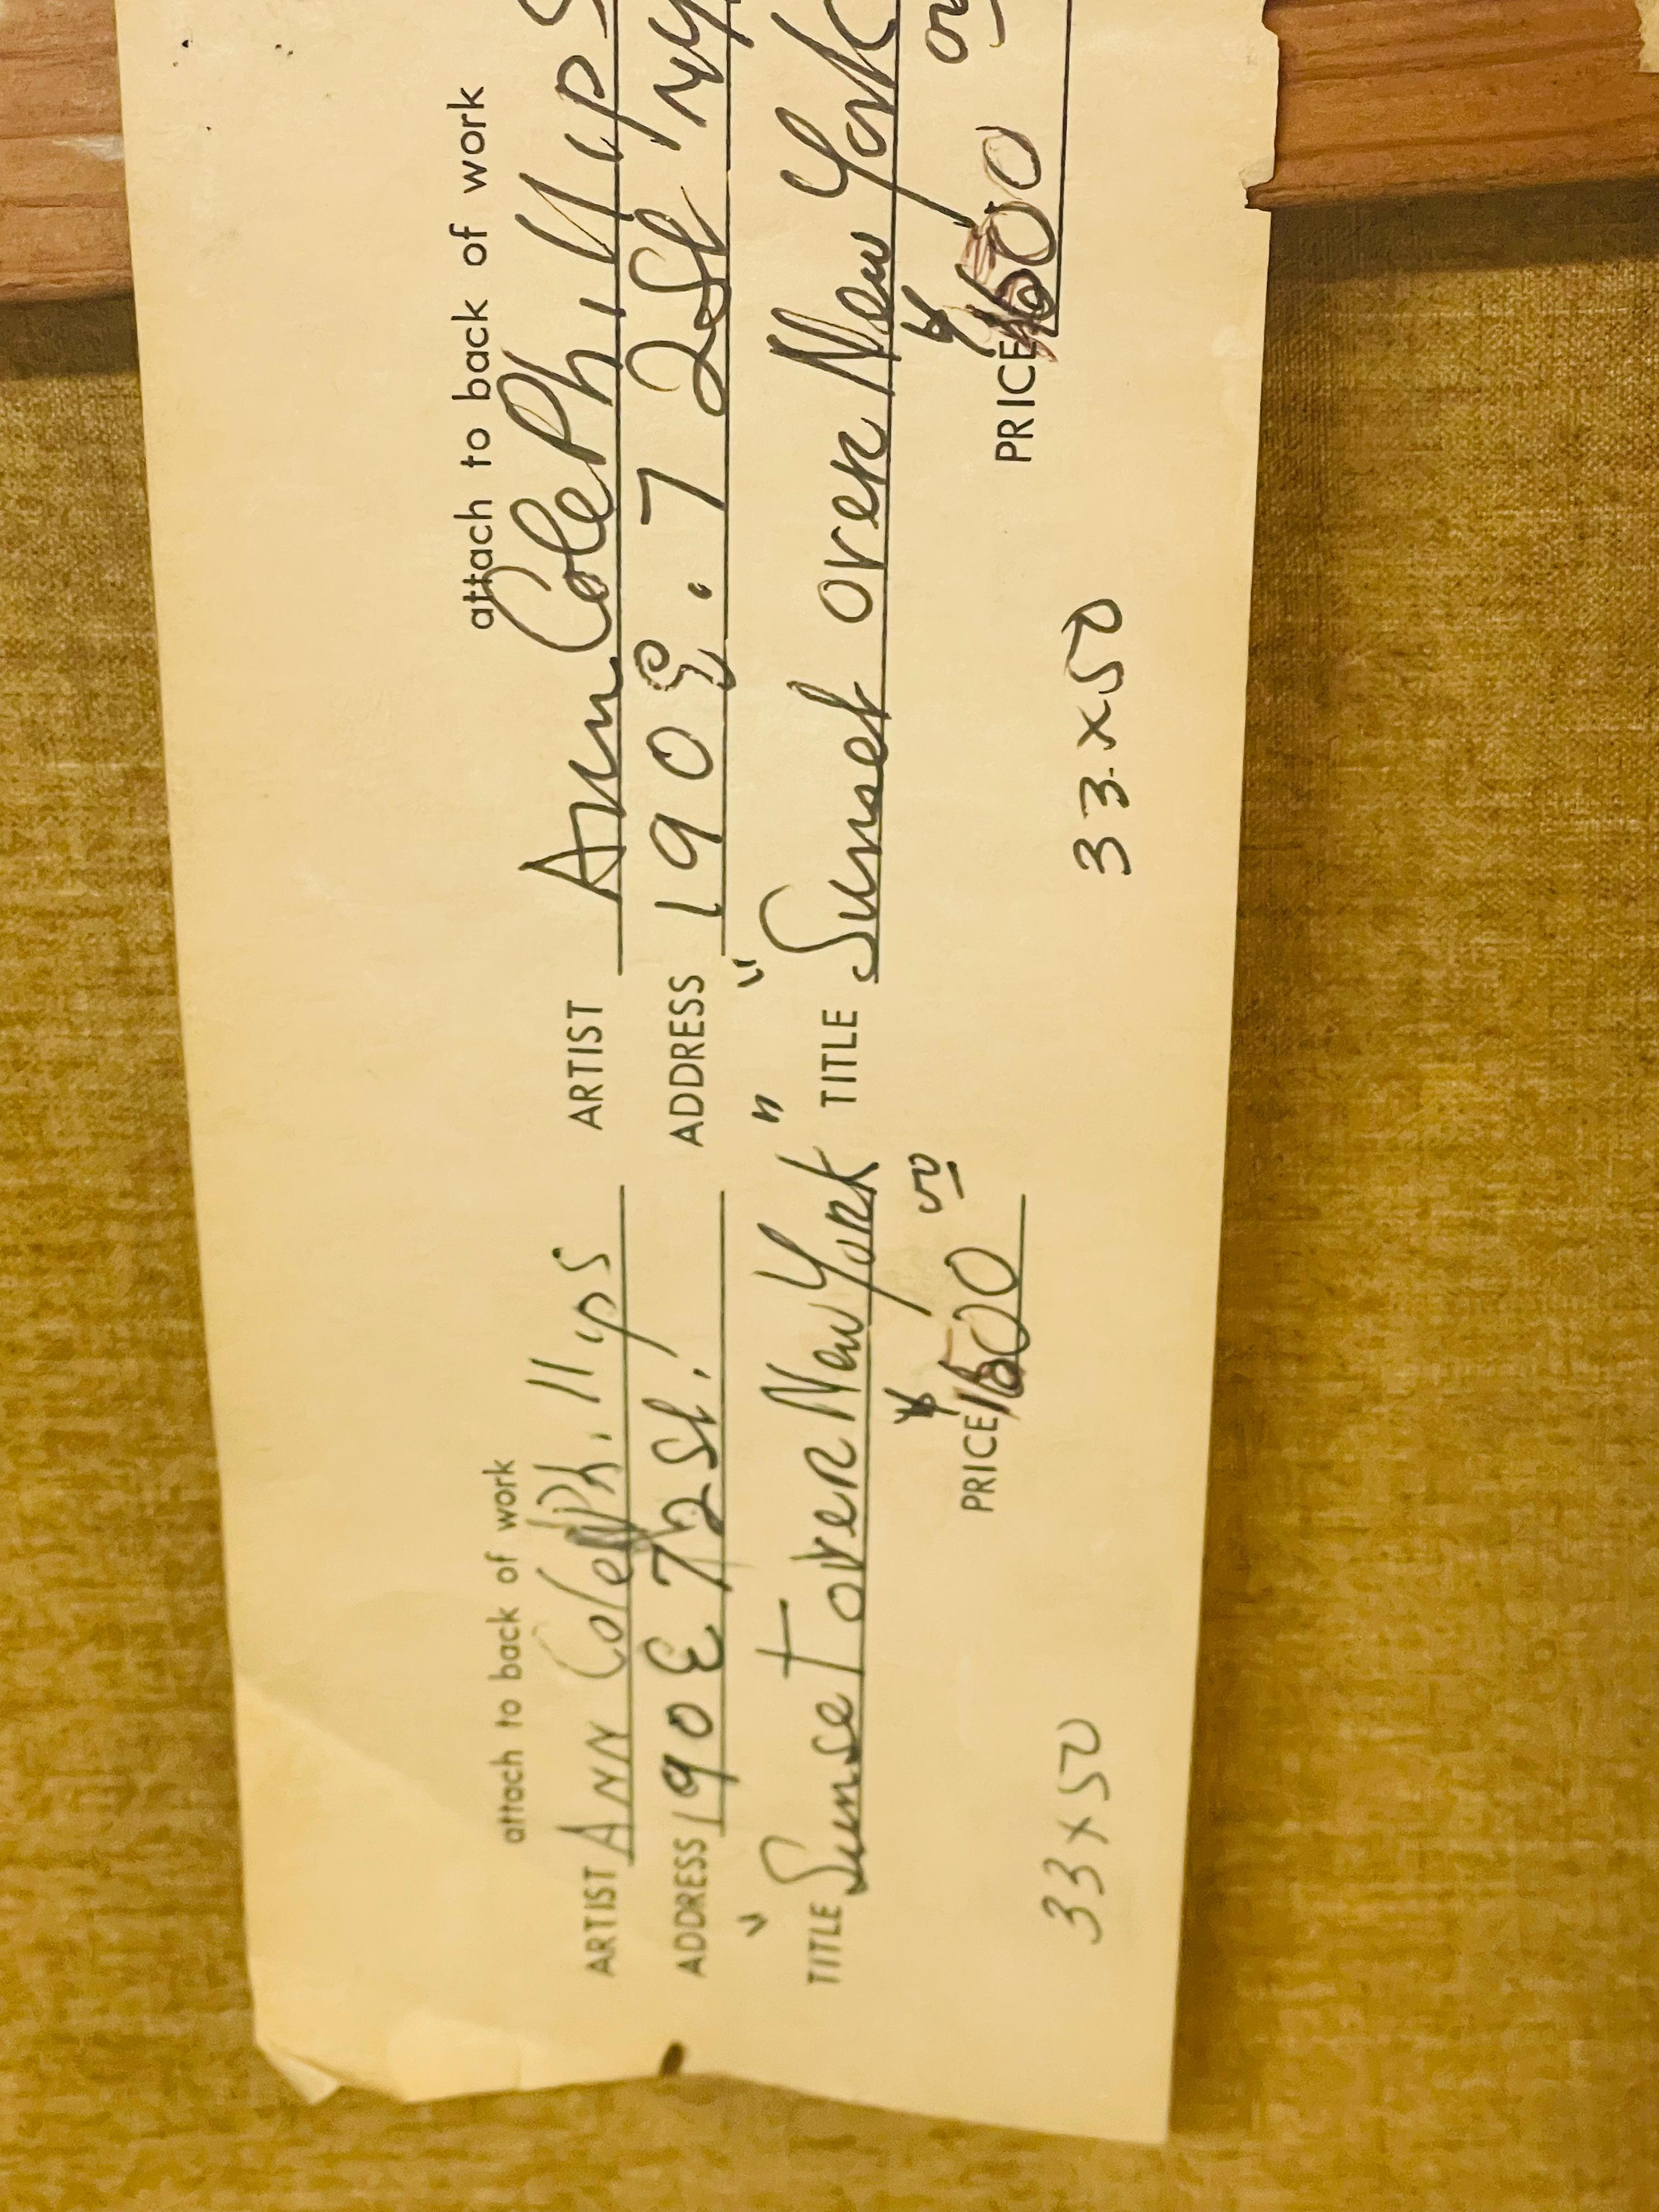 attach to back of work
ARTIST Ann Cole Phillips
ADDRESS 190 E 72 St.
TITLE "Sunset over New York"
PRICE $
33 x 50
attach to back of work
ARTIST Ann Cole Phillips
ADDRESS 190 E. 72 St NY
TITLE "Sunset over New York
PRICE $
33 x 50